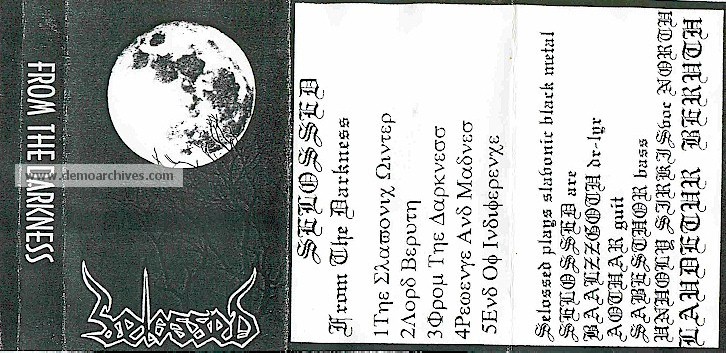 FROM THE DARKNESS
www.demoarchives.com
Selossed
SELOSSED
From The Darkness
1Τηε Σλαϖονιχ Ωιντερ
2Λορδ Βερυτη
3Φρομ Τηε Δαρκνεσσ
4Ρεϖενγε Ανδ Μαδνεσ
5Ενδ Οφ Ινδιφερενχε
Selossed plays slavonic black metal
SELOSSED are
BAALZZGOTH dr-lyr
AOTHAR guit
SABESTHOR bass
UNHOLY SIRKIS voc NORTH
LAUDETUR BERUTH